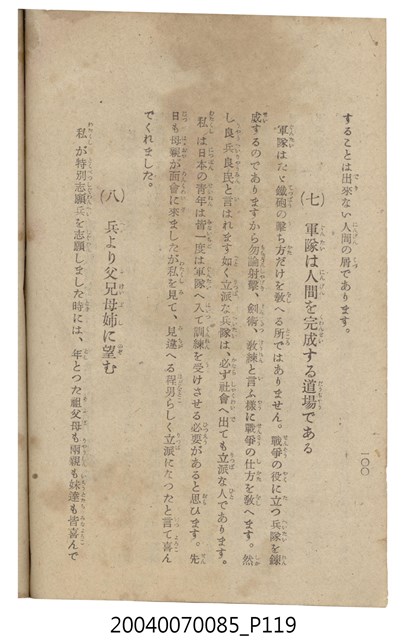 することは出來ない人間の屑であります。
(七) 軍隊は人間を完成する道場である
軍隊はたゞ鐵砲の擊ち方だけを敎へる所ではありません。戰爭の役に立つ兵隊を鍊
成するのでありますから勿論射擊、劍術、敎練と言ふ樣に戰爭の仕方を敎へます。然
し良兵良民と言はれます如く立派な兵隊は、必ず社會へ出ても立派な人であります。
私は日本の靑年は皆一度は軍隊へ入て訓練を受けさせる必要があると思ひます。先
日も母親が面會に來ましたが私を見て、見違へる程男らしく立派になつたと言て喜ん
でくれました。
(八) 兵より父兄母姉に望む
私が特別志願兵を志願しました時には、年とつた祖父母も兩親も妹達も皆喜んで
一〇〇
20040070085_P119